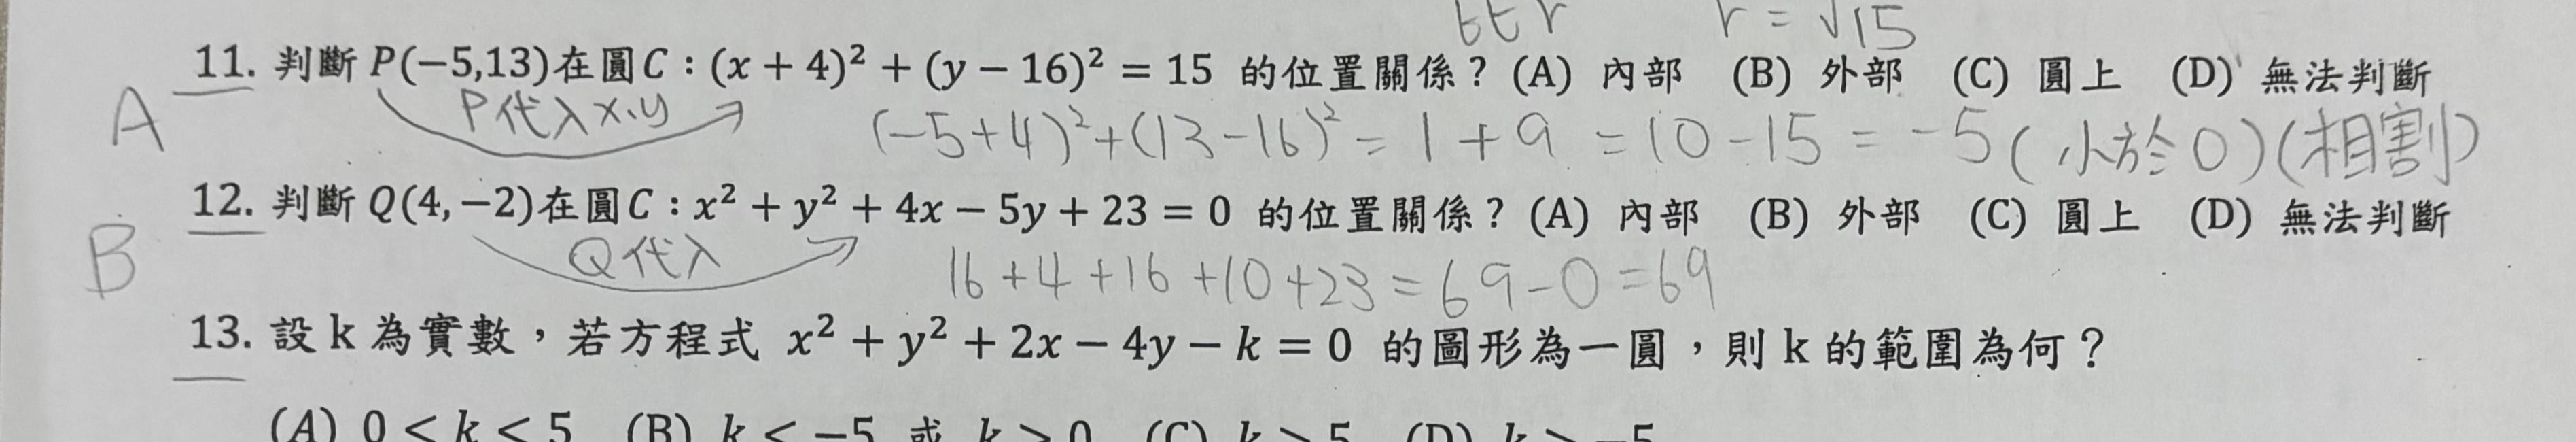 r r = √15
11. 判斷 P(−5,13)在圓C：(x + 4)² + (y − 16)² = 15 的位置關係？(A) 內部 (B) 外部 (C) 圓上 (D) 無法判斷
A P代入x、y (−5+4)²+(13−16)² = 1+9 = 10−15 = −5 (小於0)(相割)
12. 判斷 Q(4,−2)在圓C：x² + y² + 4x − 5y + 23 = 0 的位置關係？(A) 內部 (B) 外部 (C) 圓上 (D) 無法判斷
B Q代入 16+4+16+10+23=69−0=69
13. 設 k 為實數，若方程式 x² + y² + 2x − 4y − k = 0 的圖形為一圓，則 k 的範圍為何？
(A) 0 < k < 5 (B) k < −5 或 k > 0 (C) k > 5 (D) k > −5